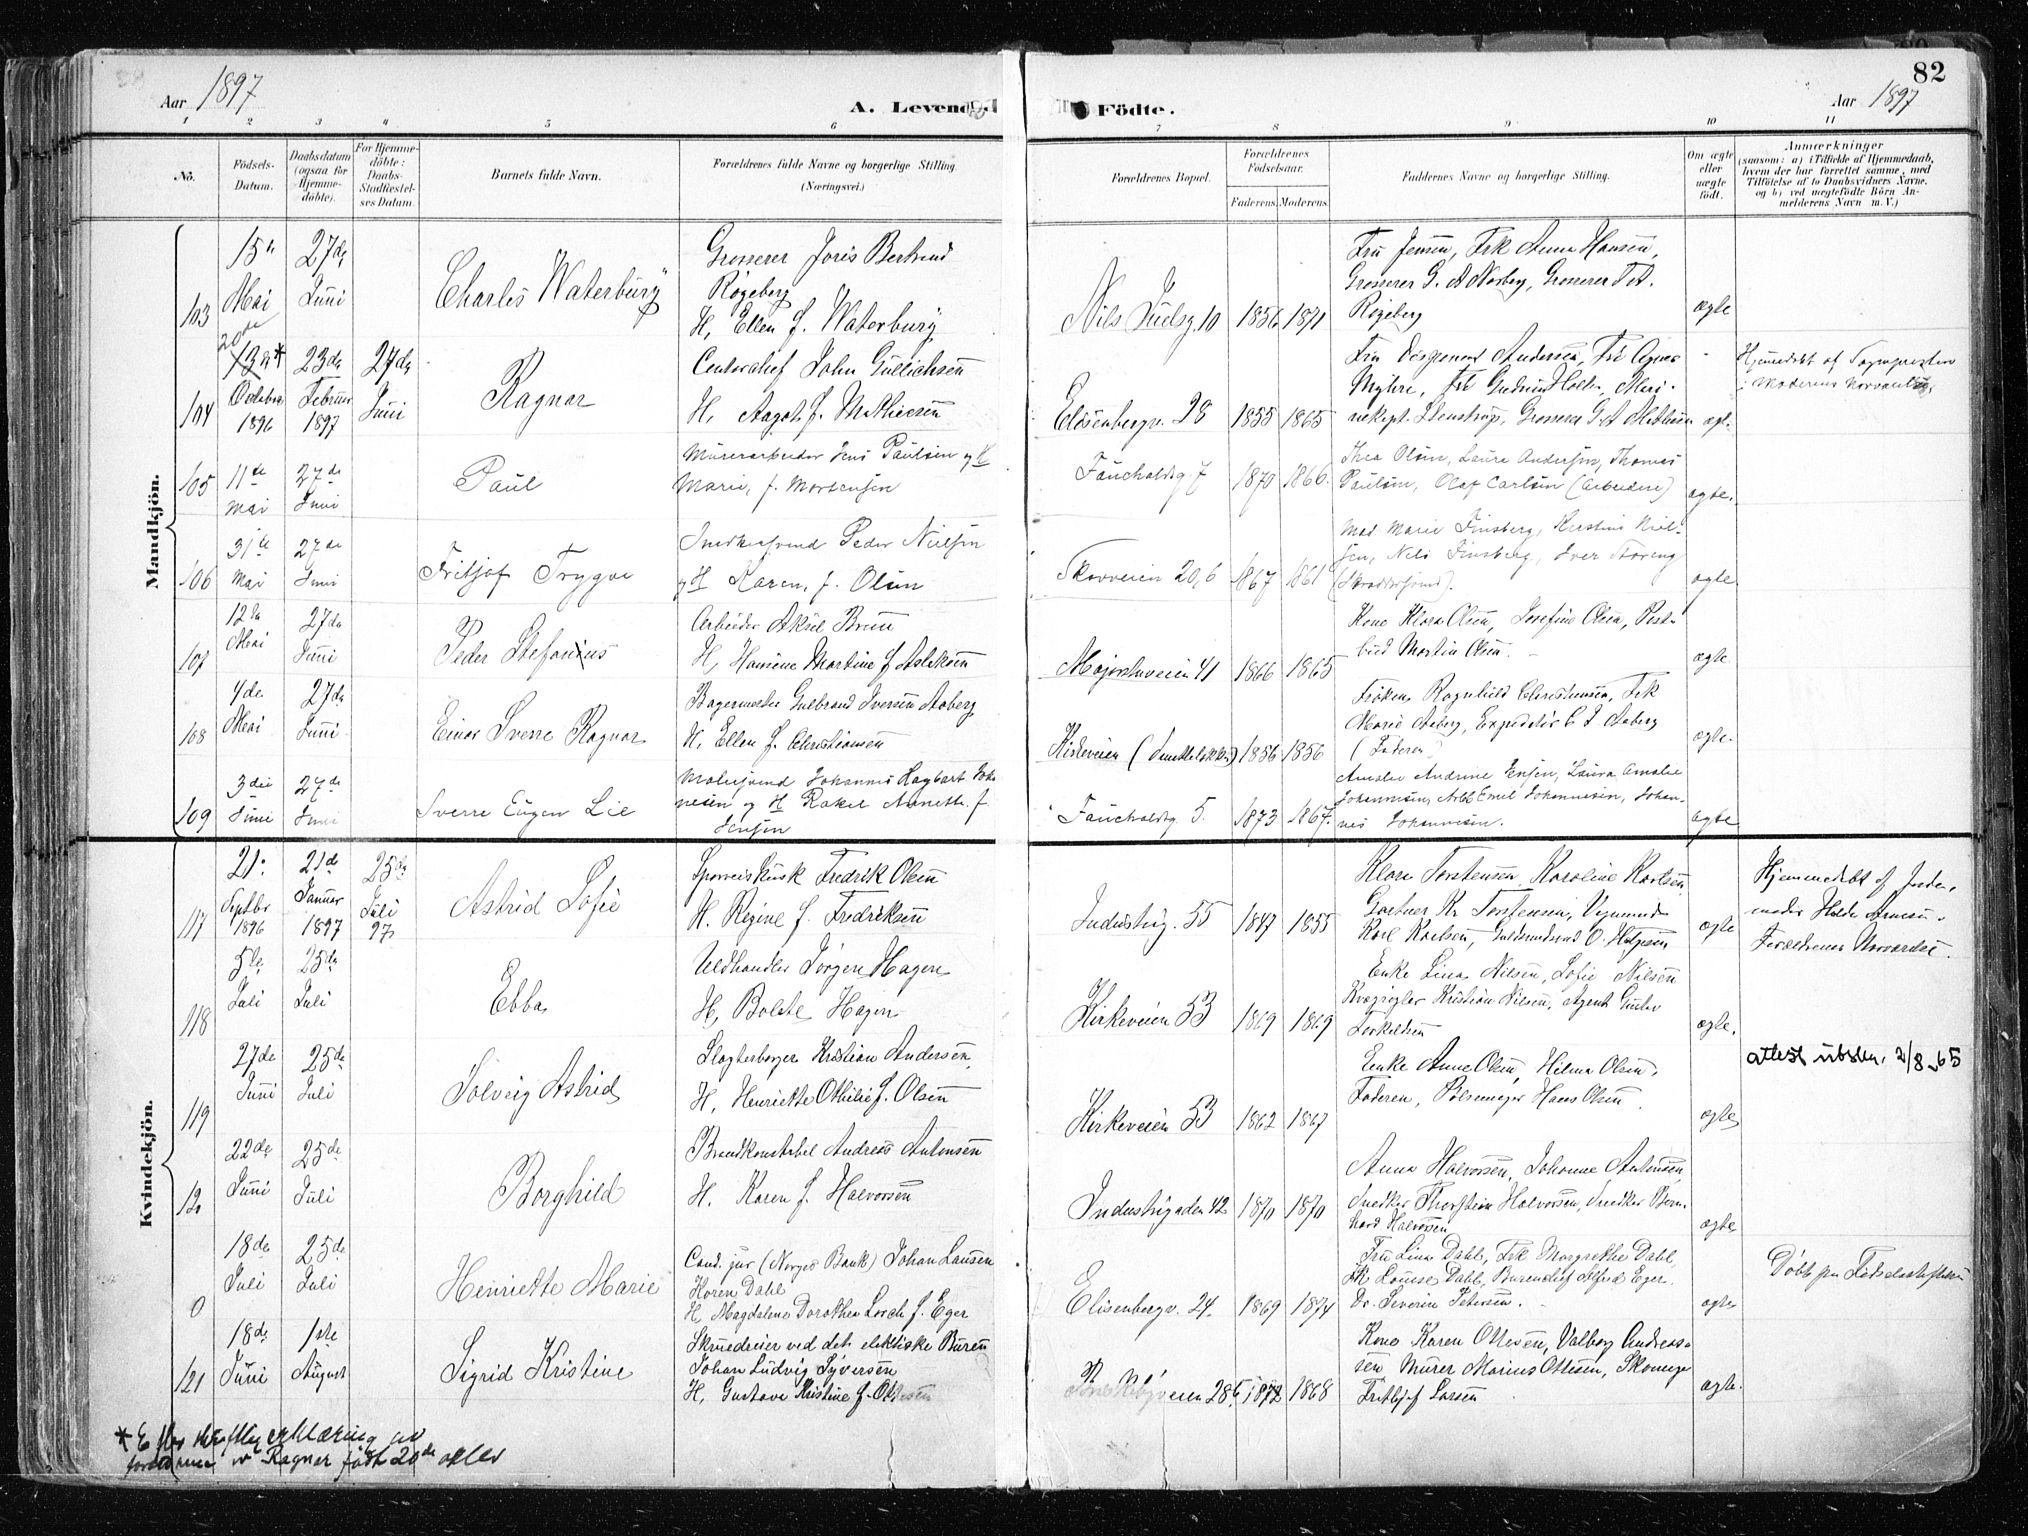 82
Aar 1897
A. Levende
Födte.
Aar 1897
1 2 3 4 5 6 7 8 9 10 11
No.
Födsels-
Datum.
Daabsdatum
(ogsaa for
Hjemme-
döbte).
For Hjemme-
döbte:
Daabs-
Stadfæstel-
ses Datum.
Barnets fulde Navn.
Forældrenes fulde Navne og borgerlige Stilling.
(Næringsvei.)
Forældrenes Bopæl.
Forældrenes
Födselsaar.
Faderens.
Moderens.
Faddernes Navne og borgerlige Stilling.
Om ægte
eller
uægte
födt.
Anmærkninger
(saasom: a) i Tilfælde af Hjemmedaab,
hvem der har forrettet samme, med
Tilföielse af to Daabsvidners Navne,
og b) ved uægtefödte Börn An-
melderens Navn m. V.)
Mandkjön.
103
15de
Mai
27de
Juni
Charles Waterbury
Grosserer Joris Bertrand
Røgeberg
H. Ellen f. Waterbury
Nils Juelsg. 10
1856
1871
Fru Jensen, Frk Anna Hansen,
Grosserer G. A. Norberg, Grosserer
Røgeberg
ægte
104
20de
13de*
Octobr
1896
23de
Februar
1897
27de
Juni
Ragnar
Contorchef John Gullichsen
H. Aagot f. Mathiesen
Elisenbergv. 28
1855
1865
Fru Andersen, Frk Agnes
Myhre, Frk Gudrun Holter, Mari-
nekapt. Stenstrup, Grosserer G. A. Mathiesen
ægte
Hjemmedøbt af Sognepresten
i Moderens Nærvær
105
11te
Mai
27de
Juni
Paul
Murerarbeider Jens Paulsen og H
Marie, f. Mortensen
Fauchaldsg 7
1870
1866
Thea Olsen, Laura Andersen, Thomas
Paulsen, Olaf Carlsen (Arbeidere)
ægte.
106
31te
Mai
27de
Juni
Fritjof Trygve
Snedkersvend Peder Nielsen
og H Karen, f. Olsen
Skovveien 20, 6
1867
1861
Mad Marie Finsberg, Kerstine Niel-
sen, Nels Finsberg, Iver Storeng
(Skræddersvend).
ægte
107
12te
Mai
27de
Juni
Peder Stefanius
Arbeider Aksel Bruun
H. Hansine Martine f. Aslaksen
Majorstuveien 41
1866
1865
Kone Klara Olsen, Josefine Olsen, Post-
bud Martin Olsen.
ægte
108
4de
Mai
27de
Juni
Einar Sverre Ragnar
Bagermester Gulbrand Iversen Aaberg
H. Ellen f. Christiansen
Kirkeveien
1856
1856
Frøken Ragnhild Christensen, Frk
Marie Aaberg, Expeditør C. J. Aaberg
(Faderen)
ægte
109
3die
Juni
27de
Juni
Sverre Eugen Lie
Malersvend Johannes Hagbart Joha
nesen og H Rakel Annette f.
Jensen
Fauchaldsg 5.
1873
1867.
Amalie Andrine Jensen, Laura Amalie
Johannesen, Arbd Emil Johannesen, Johan-
nes Johannesen.
ægte
Kvindekjön.
117
21.
Septbr
1896
21de
Januar
1897
25de
Juli
97
Astrid Sofie
Sporveiskusk Fredrik Olsen
H. Regine f. Fredriksen
Industrig. 55
1847
1855
Klara Torstensen, Karoline Karlsen
Gartner Kr Torstensen, Vognmand
Karl Karlsen, Guldsmedsvend O. Helgesen
ægte
Hjemmedøbt af Jorde-
moder Hulda Arnesen.
Forældrene Nærværelse.
118
5te
Juli
25de
Juli
Ebba
Uldhandler Jørgen Hagen
H. Bolette Hagen
Kirkeveien 53
1869
1869
Enke Lina Nilsen, Sofie Nilsen
Kvægrøgter Kristian Nilsen, Agent Gustav
Torkildsen
ægte.
119
27de
Juni
25de
Juli
Solveig Astrid
Slagterborger Kristian Andersen
H. Henriette Othilie f. Olsen
Kirkeveien 53
1862
1867
Enke Anne Olsen, Hilma Olsen,
Faderen, Pølsemager Hans Olsen
ægte
attest utsten. 2/8-65
120
22de
Juni
25de
Juli
Borghild
Brandkonstabel Andreas Antonsen
H. Karen f. Halvorsen
Industrigaden 42
1870
1870
Anna Halvorsen, Johanne Antonsen,
Snedker Thorstein Halvorsen, Snedker Bern-
hard Halvorsen
ægte
0
18de
Juli
25de
Juli
Henriette Marie
Cand. jur (Norges Bank) Johan Lausen
Horen Dahl
H. Magdalena Dorothea Lorch f. Eger
Elisenbergv. 24.
1869
1874
Fru Lina Dahl, Frk Margrethe Dahl,
Frk Louise Dahl, Bureauchef Alfred Eger.
Dr. Severin Petersen.
ægte
Døbt paa Fødselsstiftelsen
121
18de
Juni
1ste
August
Sigrid Kristine
Skruedreier ved det elektriske Bureau
Johan Ludvig Syversen
H. Gustava Kristine f. Ottesen
1872
1868
Kone Karen Ottesen, Valborg Andreas-
sen Murer Marius Ottesen, Skomager
Frithjof Larsen
ægte.
* Efter skriftlig erklæring av
forældrene er Ragnar født 20de october